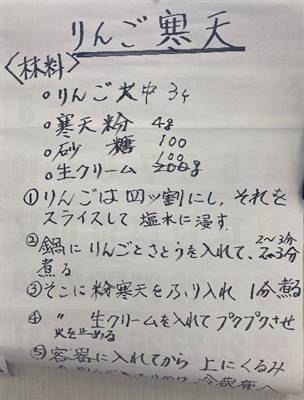 りんご寒天
〈材料〉
○りんご大中 3ヶ
○寒天粉 4g
○砂糖 100
○生クリーム 100
①りんごは四ッ割にし、それを
スライスして 塩水に浸す
②鍋にりんごとさとうを入れて、2～3分
煮る
③そこに粉寒天をふり入れ 1分煮る
④ 〃 生クリームを入れてプクプクさせ
火を止める
⑤容器に入れてから 上にくるみ
冷蔵庫へ